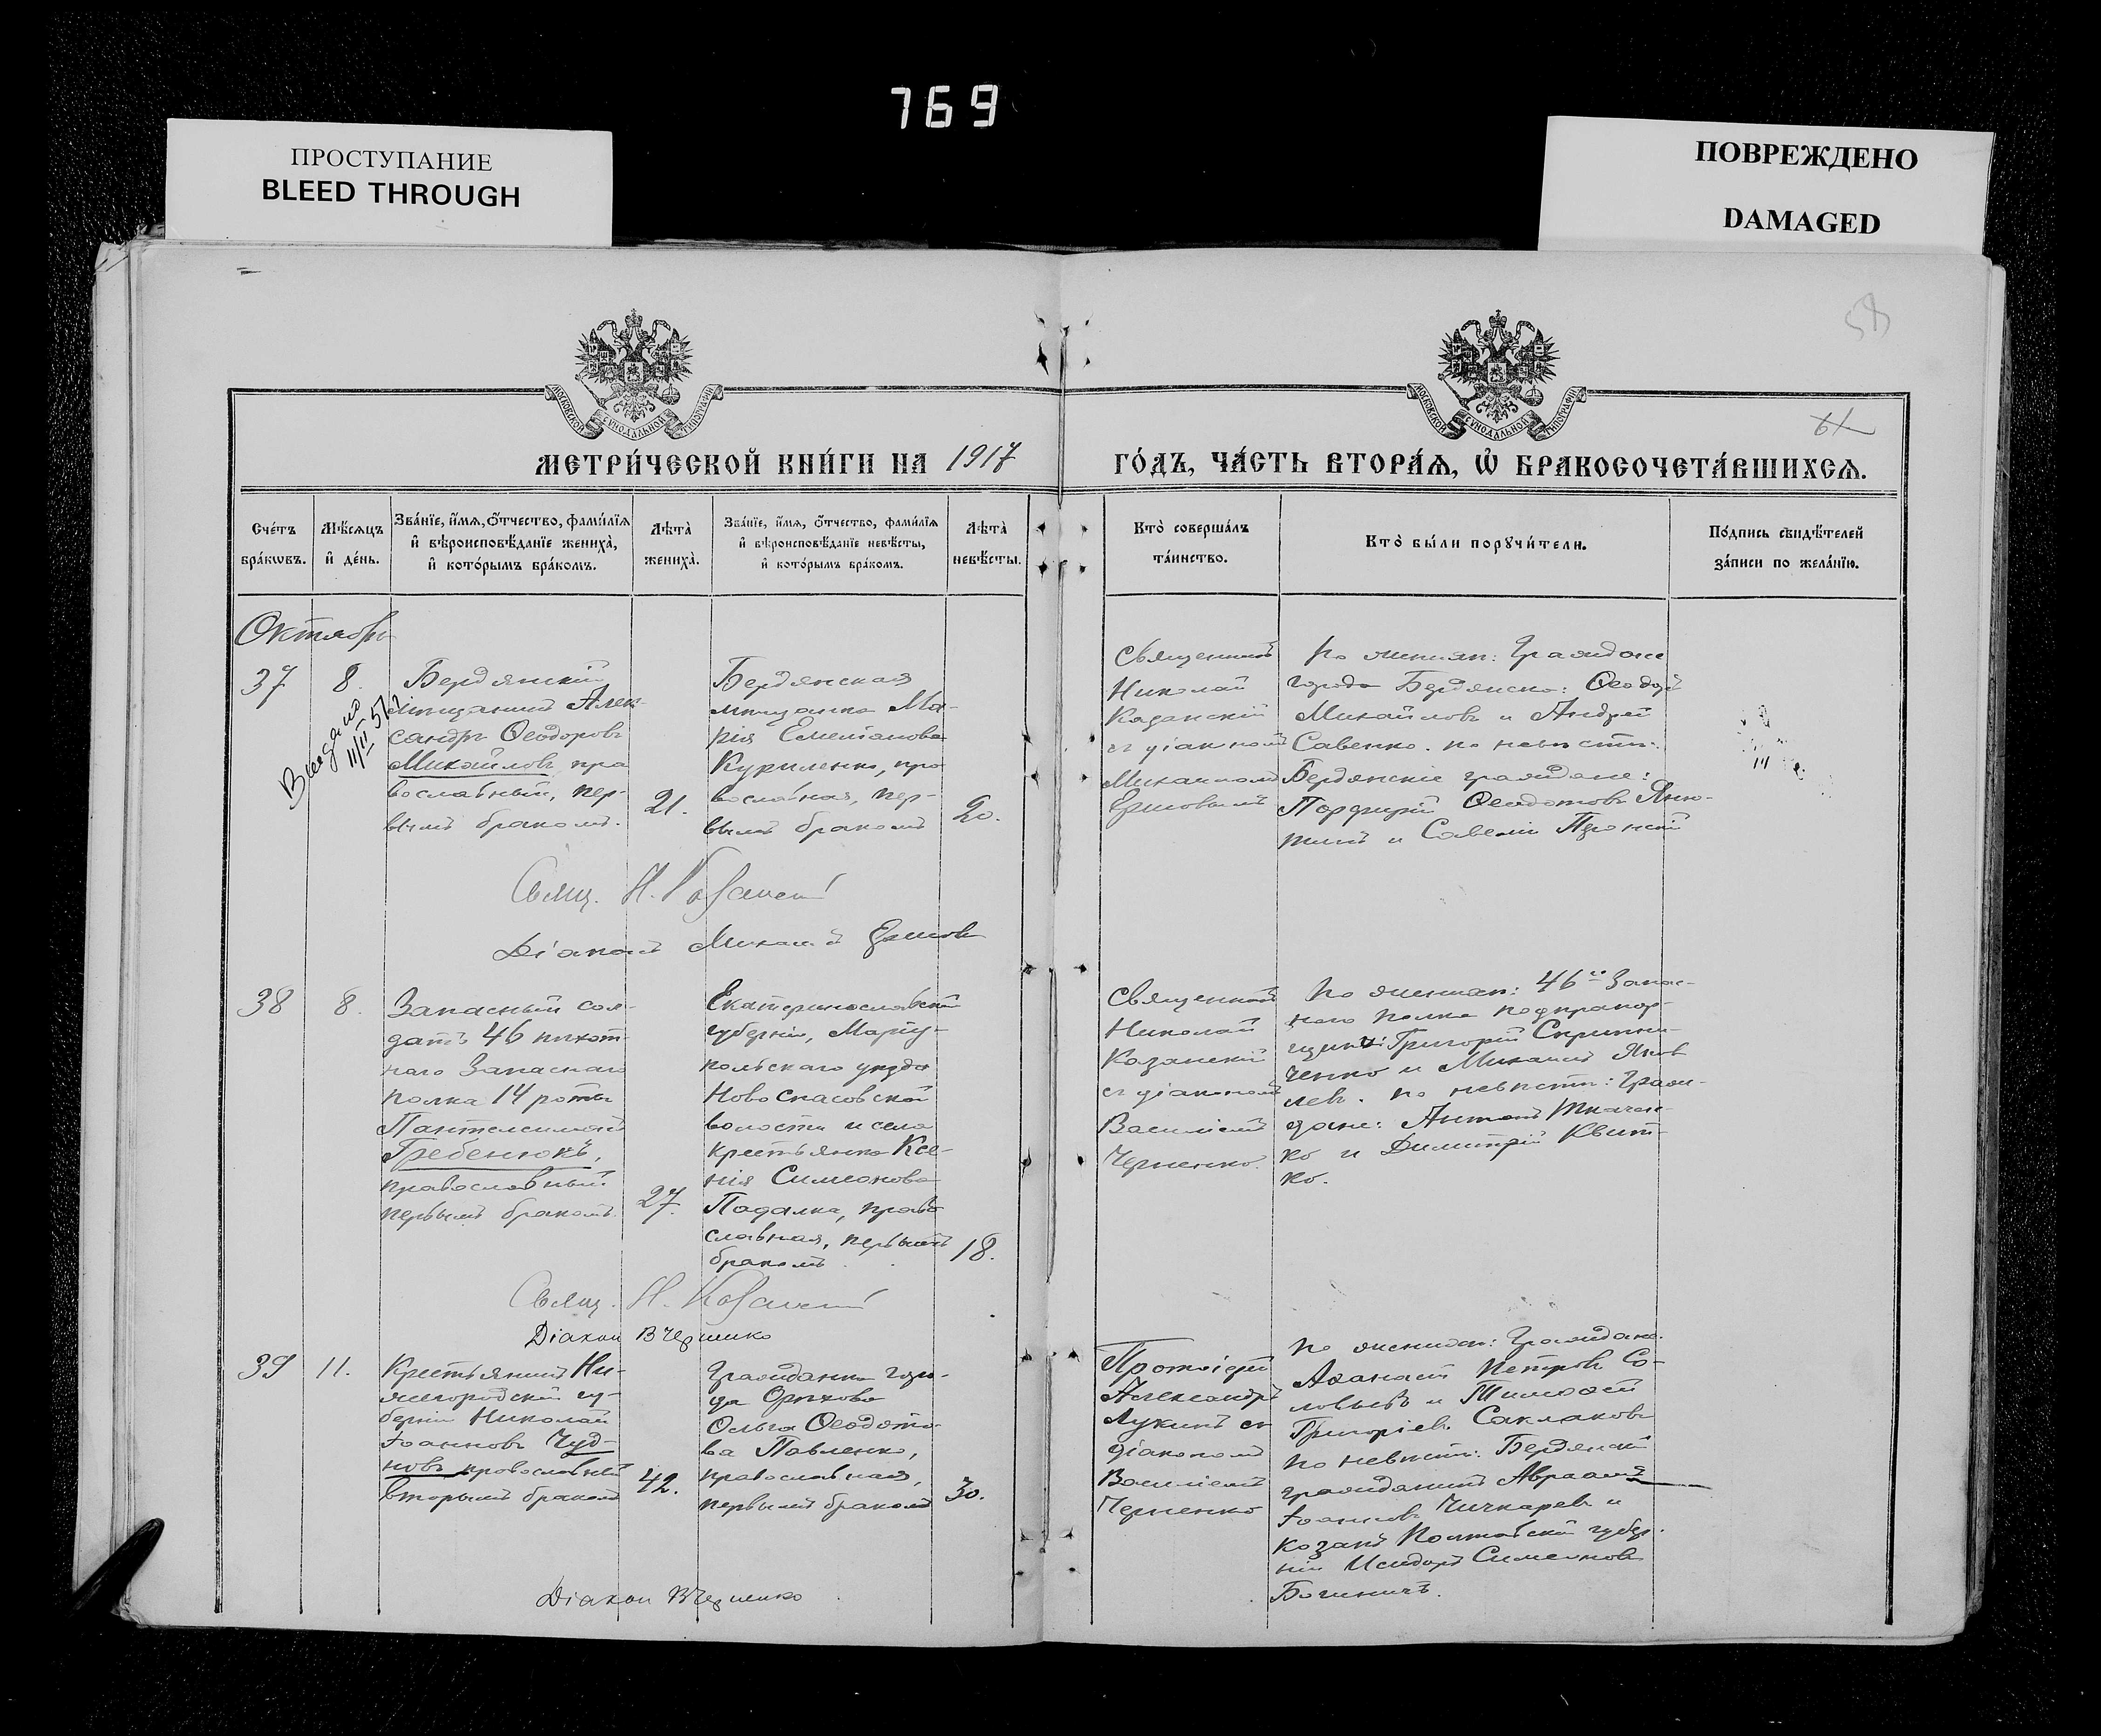 769
ПРОСТУПАНИЕ
BLEED THROUGH
ПОВРЕЖДЕНО
DAMAGED
58
МОСКОВСКОЙ СУНОДАЛЬНОЙ ТИПОГРАФІИ
МОСКОВСКОЙ СУНОДАЛЬНОЙ ТИПОГРАФІИ
МЕТРИ́ЧЕСКОЙ КНИ́ГИ НА 1917
ГО́ДЪ, ЧА́СТЬ ВТОРА́Ѧ, Ѽ БРАКОСОЧЕТА́ВШИХСѦ.
Сче́тъ
бра́кѡвъ.
Мѣ́сѧцъ
и҆ де́нь.
Зва́нїе, и҆́мѧ, ѻ҆́тчество, фами́лїѧ
и҆ вѣроисповѣ́данїе жениха̀,
и҆ кото́рымъ бра́комъ.
Лѣта̀
жениха̀.
Зва́нїе, и҆́мѧ, ѻ҆́тчество, фами́лїѧ
и҆ вѣроисповѣ́данїе невѣ́сты,
и҆ кото́рымъ бра́комъ.
Лѣта̀
невѣ́сты.
Кто̀ соверша́лъ
та́инство.
Кто̀ бы́ли порꙋчи́тели.
По́дпись свидѣ́телей
за́писи по жела́нїю.
Октябрь
37
8.
Выдано
11/II 57
Бердянскій
мѣщанинъ Алек-
сандръ Ѳеодоровъ
Михайловъ, пра
вославный, пер-
вымъ бракомъ.
21.
Бердянская
мѣщанка Ма-
рія Емеліанова
Куриленко, пра
вославная, пер-
вымъ бракомъ
20.
Священникъ
Николай
Казанскій
съ діакономъ
Михаиломъ
Ершовымъ
По жених: Граждане
города Бердянска: Ѳеодоръ
Михайловъ и Андрей
Савенко. по невѣстѣ:
Бердянскіе граждане:
Порфирій Ѳеодотовъ
и Савелій
Свящ. Н. Казанскій
Діаконъ Михаилъ Ершовъ
38
8.
Запасный сол-
датъ 46 пѣхот
наго Запаснаго
полка 14 роты
Пантелеимонъ
Гребенюкъ,
православный
первымъ бракомъ.
27.
Екатеринославской
губерніи, Маріу-
польскаго уѣзда
Новоспасовской
волости и села
крестьянка Ксе-
нія Симеонова
Падалка, право
славная, первымъ
бракомъ.
18.
Священникъ
Николай
Казанскій
съ діакономъ
Василіемъ
Черненко.
По жених: 46го Запас-
наго полка подпрапор-
щики: Григорій Скрипни-
ченко и Михаилъ Яков
левъ. по невѣстѣ: Граж-
дане: Антонъ Ткачен-
ко и Димитрій Квит-
ко.
Свящ. Н. Казанскій
Діакон В Черненко
39
11.
Крестьянинъ Ни-
жегородской гу-
берніи Николай
Іоанновъ Чуд-
новъ православный
вторымъ бракомъ
42.
Гражданка горо-
да Орѣхова
Ольга Ѳеодото-
ва Павленко,
православная,
первымъ бракомъ
30.
Протоіерей
Александръ
Лукинъ съ
діакономъ
Василіемъ
Черненко
По жених: Граждане
Аѳанасій Петровъ Со-
ловьевъ и Тимоѳей
Григоріевъ Саклаковъ
по невѣстѣ: Бердянскій
гражданинъ Авраамъ
Іоанновъ Чичкаревъ и
козакъ Полтавской губер-
ніи Исидоръ Симеоновъ
Діакон В Черненко